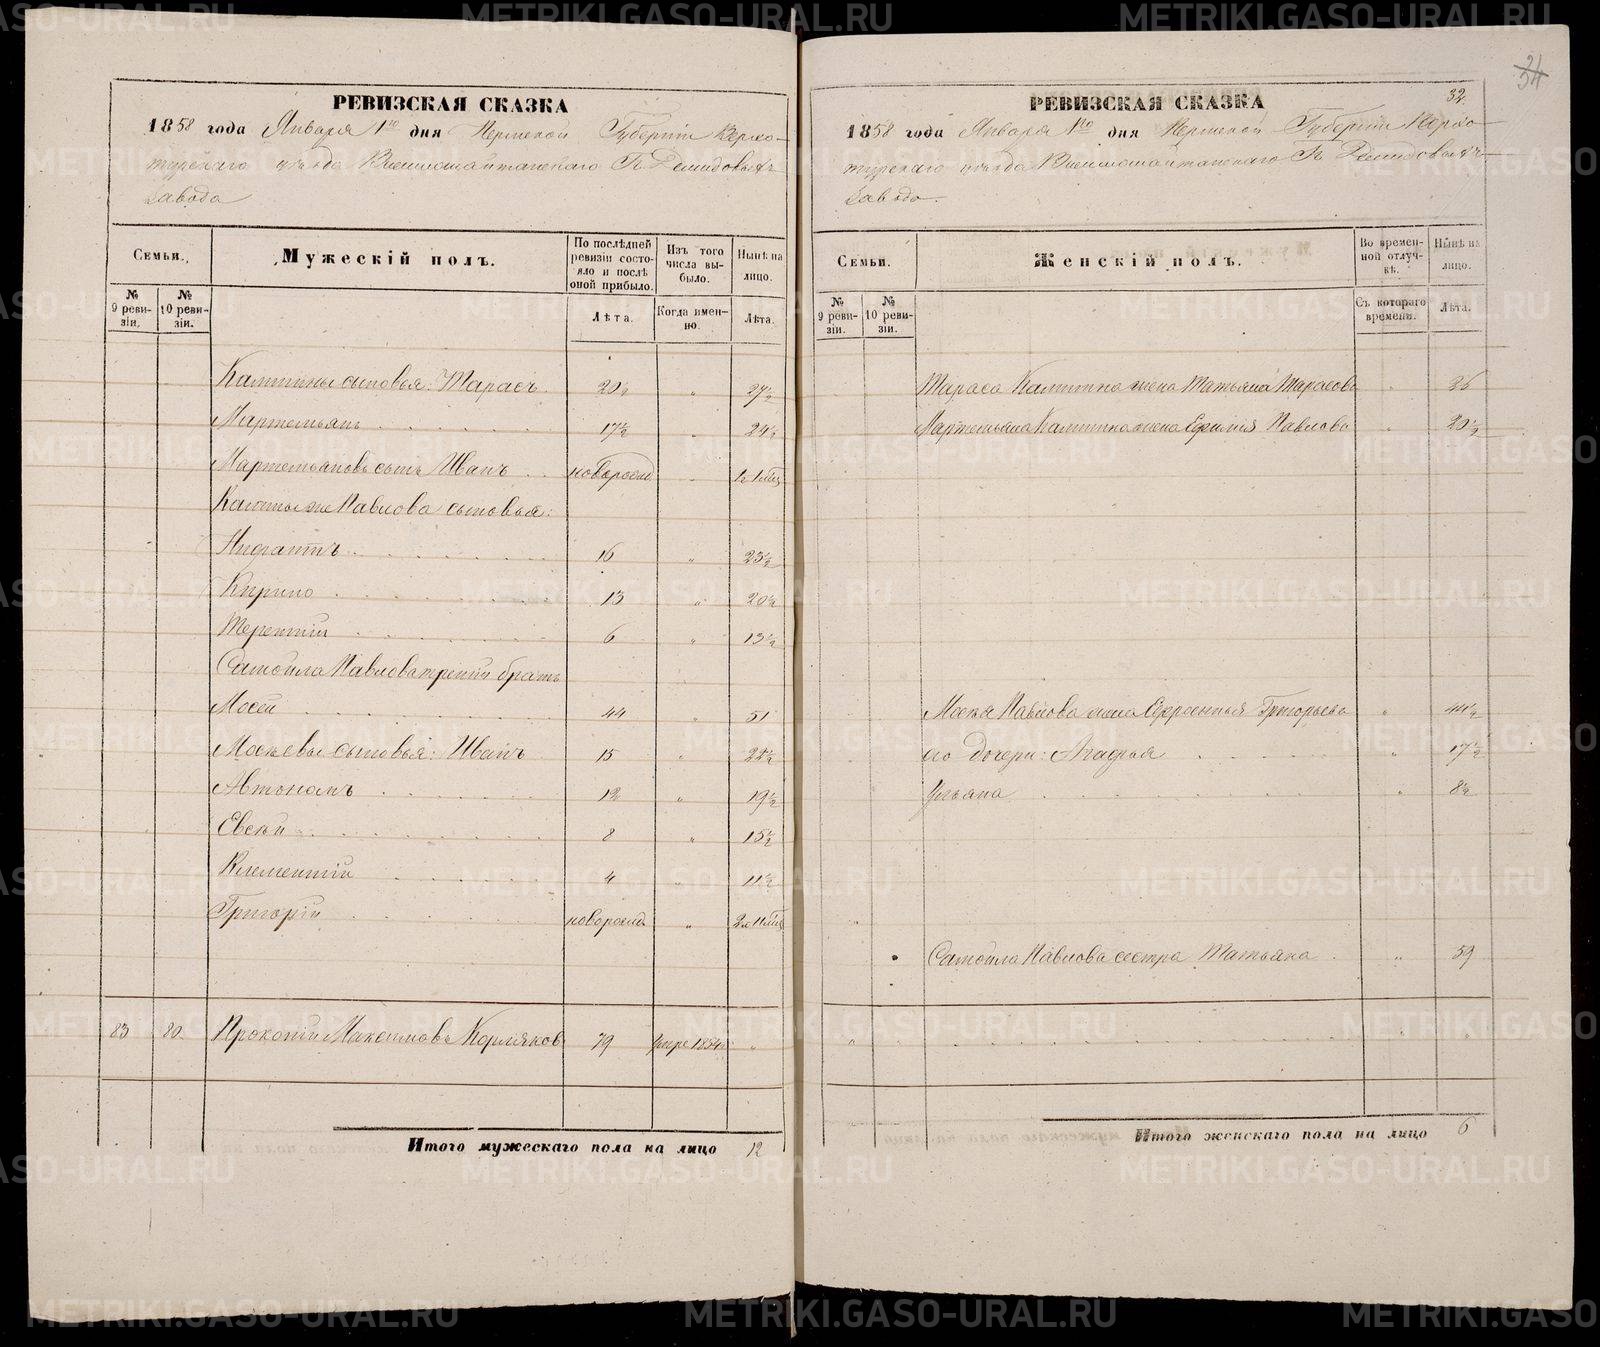 РЕВИЗСКАЯ СКАЗКА
1858 года Января 1го дня Пермской Губерніи Верхо-
турскаго уѣзда Висимошайтанскаго Гг. Демидовыхъ
Завода
Семьи.
Мужескій полъ.
По послѣдней ревизіи состояло и послѣ оной прибыло.
Изъ того числа выбыло.
Нынѣ на лицо.
№ 9 ревизіи.
№ 10 ревизіи.
Лѣта.
Когда именно.
Лѣта.
сыновья: Тарасъ 20½ „ 27½
Мартемьянъ 17½ „ 24½
Мартемьяновъ сынъ Иванъ новорожд „
Павлова сыновья:
16 „ 23½
Кирило 13 „ 20½
Терентій 6 „ 13½
Самойла Павлова третій братъ
Мосей 44 „ 51
Мосеевы сыновья: Иванъ 15 „ 22½
Автономъ 12 „ 19½
Евсѣй 8 „ 15½
Клементій 4 „ 11½
Григорій новорожд „
83 80. Прокопій Максимовъ Корляковъ 79 умре 1854 „
Итого мужескаго пола на лицо 12
32.
РЕВИЗСКАЯ СКАЗКА
1858 года Января 1го дня Пермской Губерніи Верхо-
турскаго уѣзда Висимошайтанскаго Гг. Демидовыхъ
Завода.
Семьи.
Женскій полъ.
Во временной отлучкѣ.
Нынѣ на лицо.
№ 9 ревизіи.
№ 10 ревизіи.
Съ котораго времени.
Лѣта.
Тараса жена Татьяна Тарасова „ 26
Мартемьяна жена Павлова „ 20½
Мосея Павлова жена Григорьева „ 44½
его дочери: Агафья „ 17½
Ульяна „ 8½
Самойла Павлова сестра Татьяна „ 59
Итого женскаго пола на лицо 6
METRIKI.GASO-URAL.RU